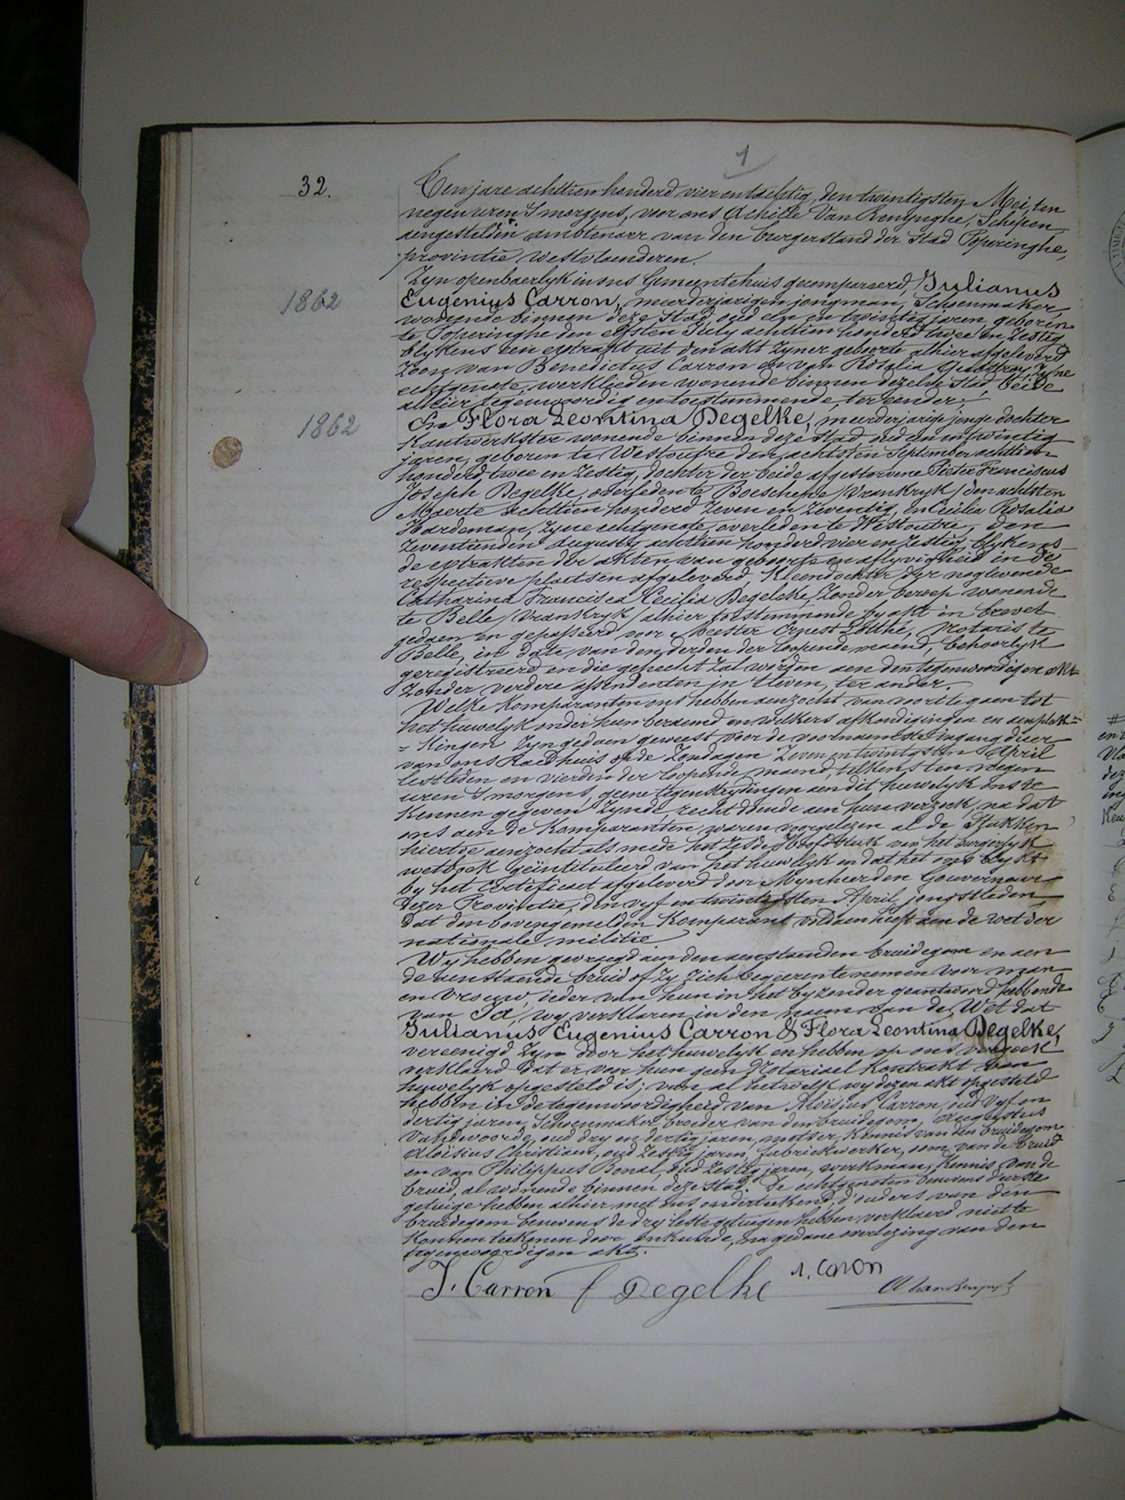 1
32.
Ten jare achttien honderd vier en tachtig, den twintigsten Mei, ten
negen uren 's morgens, voor ons Achille Van Renynghe, Schepen
aengestelden ambtenaer van den burgerstand der Stad Poperinghe,
provintie westvlaenderen.
Zyn openbaerlyk in ons Gemeentehuis gecompareerd, Julianus
1862
Eugenius Carron, meerderjarigen jongman, Schoenmaker,
wonende binnen deze Stad oud een en twintig jaren, geboren
te Poperinghe den elfsten July achttien honderd twee en zestig
blykens een extrakt uit den akt zyner geboorte alhier afgeleverd
Zoon van Benedictus Carron en van Rosalia zyne
echtgenote, werklieden wonende binnen dezelve stad beide
alhier tegenwoordig en toestemmende, ter eender.
1862
En Flora Leontina Degelke, meerderjarige jonge dochter
Kantwerkster wonende binnen deze stad oud een en twintig
jaren, geboren te Westoutre den achtsten September achttien
honderd twee en zestig, dochter der beide afgestorvene Pieter Franciscus
Joseph Degelke, overleden te Boeschepe /Vrankryk/ den achtsten
Maerte achttien honderd zeven en zeventig, en Cecilia Rosalia
Hardeman, zyne echtgenote, overleden te Westoutre, den
zeventienden Augusty achttien honderd vier en zestig, blykens
de extrakten der akten van geboorte en aflyvigheid in de
respectieve plaetsen afgeleverd, Kleendochter der noglevende
Catharina Francisca Cecilia Degelcke, zonder beroep wonende
te Belle /Vrankryk/ alhier toestemmende by akt in brevet
gedaen en gepasseerd voor Meester Ernest Notaris te
Belle, in date van den derden der loopende maend, behoorlyk
geregistreerd en die gehecht zal worden aen den tegenwoordigen akt
zonder verdere assendenten in 't leven, ter ander.
Welke komparanten ons hebben aenzocht van voort te gaen tot
het huwelyk onder hun beraemd en welkers afkondigingen en aenplak=
=kingen zyn gedaen geweest voor de voornaemste ingang dier
van ons Raedhuis op de Zondagen Zeven en twintigsten April
lestleden en vierden der loopende maend, telkens ten negen
uren 's morgens, geene tegenkantingen aen dit huwelyk ons te
kennen gegeven zynde, recht doende aen hun verzoek, na dat
ons aen de komparanten waren voorgelezen al de Stukken
hiertoe aenzocht als mede het zesde Hoofdstuk van het burgerlyk
wetboek geintituleerd van het huwelyk en dat het ons blykt
by het certificaet afgeleverd door Mynheer den Gouverneur
dezer Provintie, den vyf en twintigsten April jongstleden,
dat den bovengemelden komparant voldaen heeft aen de wet der
nationale militie.
Wy hebben gevraegd aen den aenstaenden bruidegom en aen
de aenstaende bruid of zy zich begeeren te nemen voor man
en vrouw, ieder van hun in het byzonder geantwoord hebbende
van Ja, wy verklaren in den naem van de Wet dat
Julianus Eugenius Carron & Flora Leontina Degelke,
vereenigd zyn door het huwelyk en hebben op ons verzoek
verklaerd dat er voor hun geen Notariael kontrakt van
huwelyk opgesteld is; van al hetwelk wy dezen akt opgesteld
hebben in de tegenwoordigheid van Aloïsius Carron, oud vyf en
dertig jaren, Schoenmaker, broeder van den bruidegom, Augustus
Vandevoorde, oud dry en dertig jaren, metser, kennis van den bruidegom
Aloïsius Christiaen, oud zestig jaren, fabriekwerker, oom van de bruid
en van Philippus Benal, oud zestig jaren, werkman, kennis van de
bruid, al wonende binnen deze stad. De echtgenoten benevens d'eerste
getuige hebben alhier met ons onderteekend, d'ouders van den
bruidegom benevens de dry leste getuigen hebben verklaerd niet te
konnen teekenen door onkunde, na gedane overlezing van den
tegenwoordigen akt.
J. Carron f Degelke A. Caron